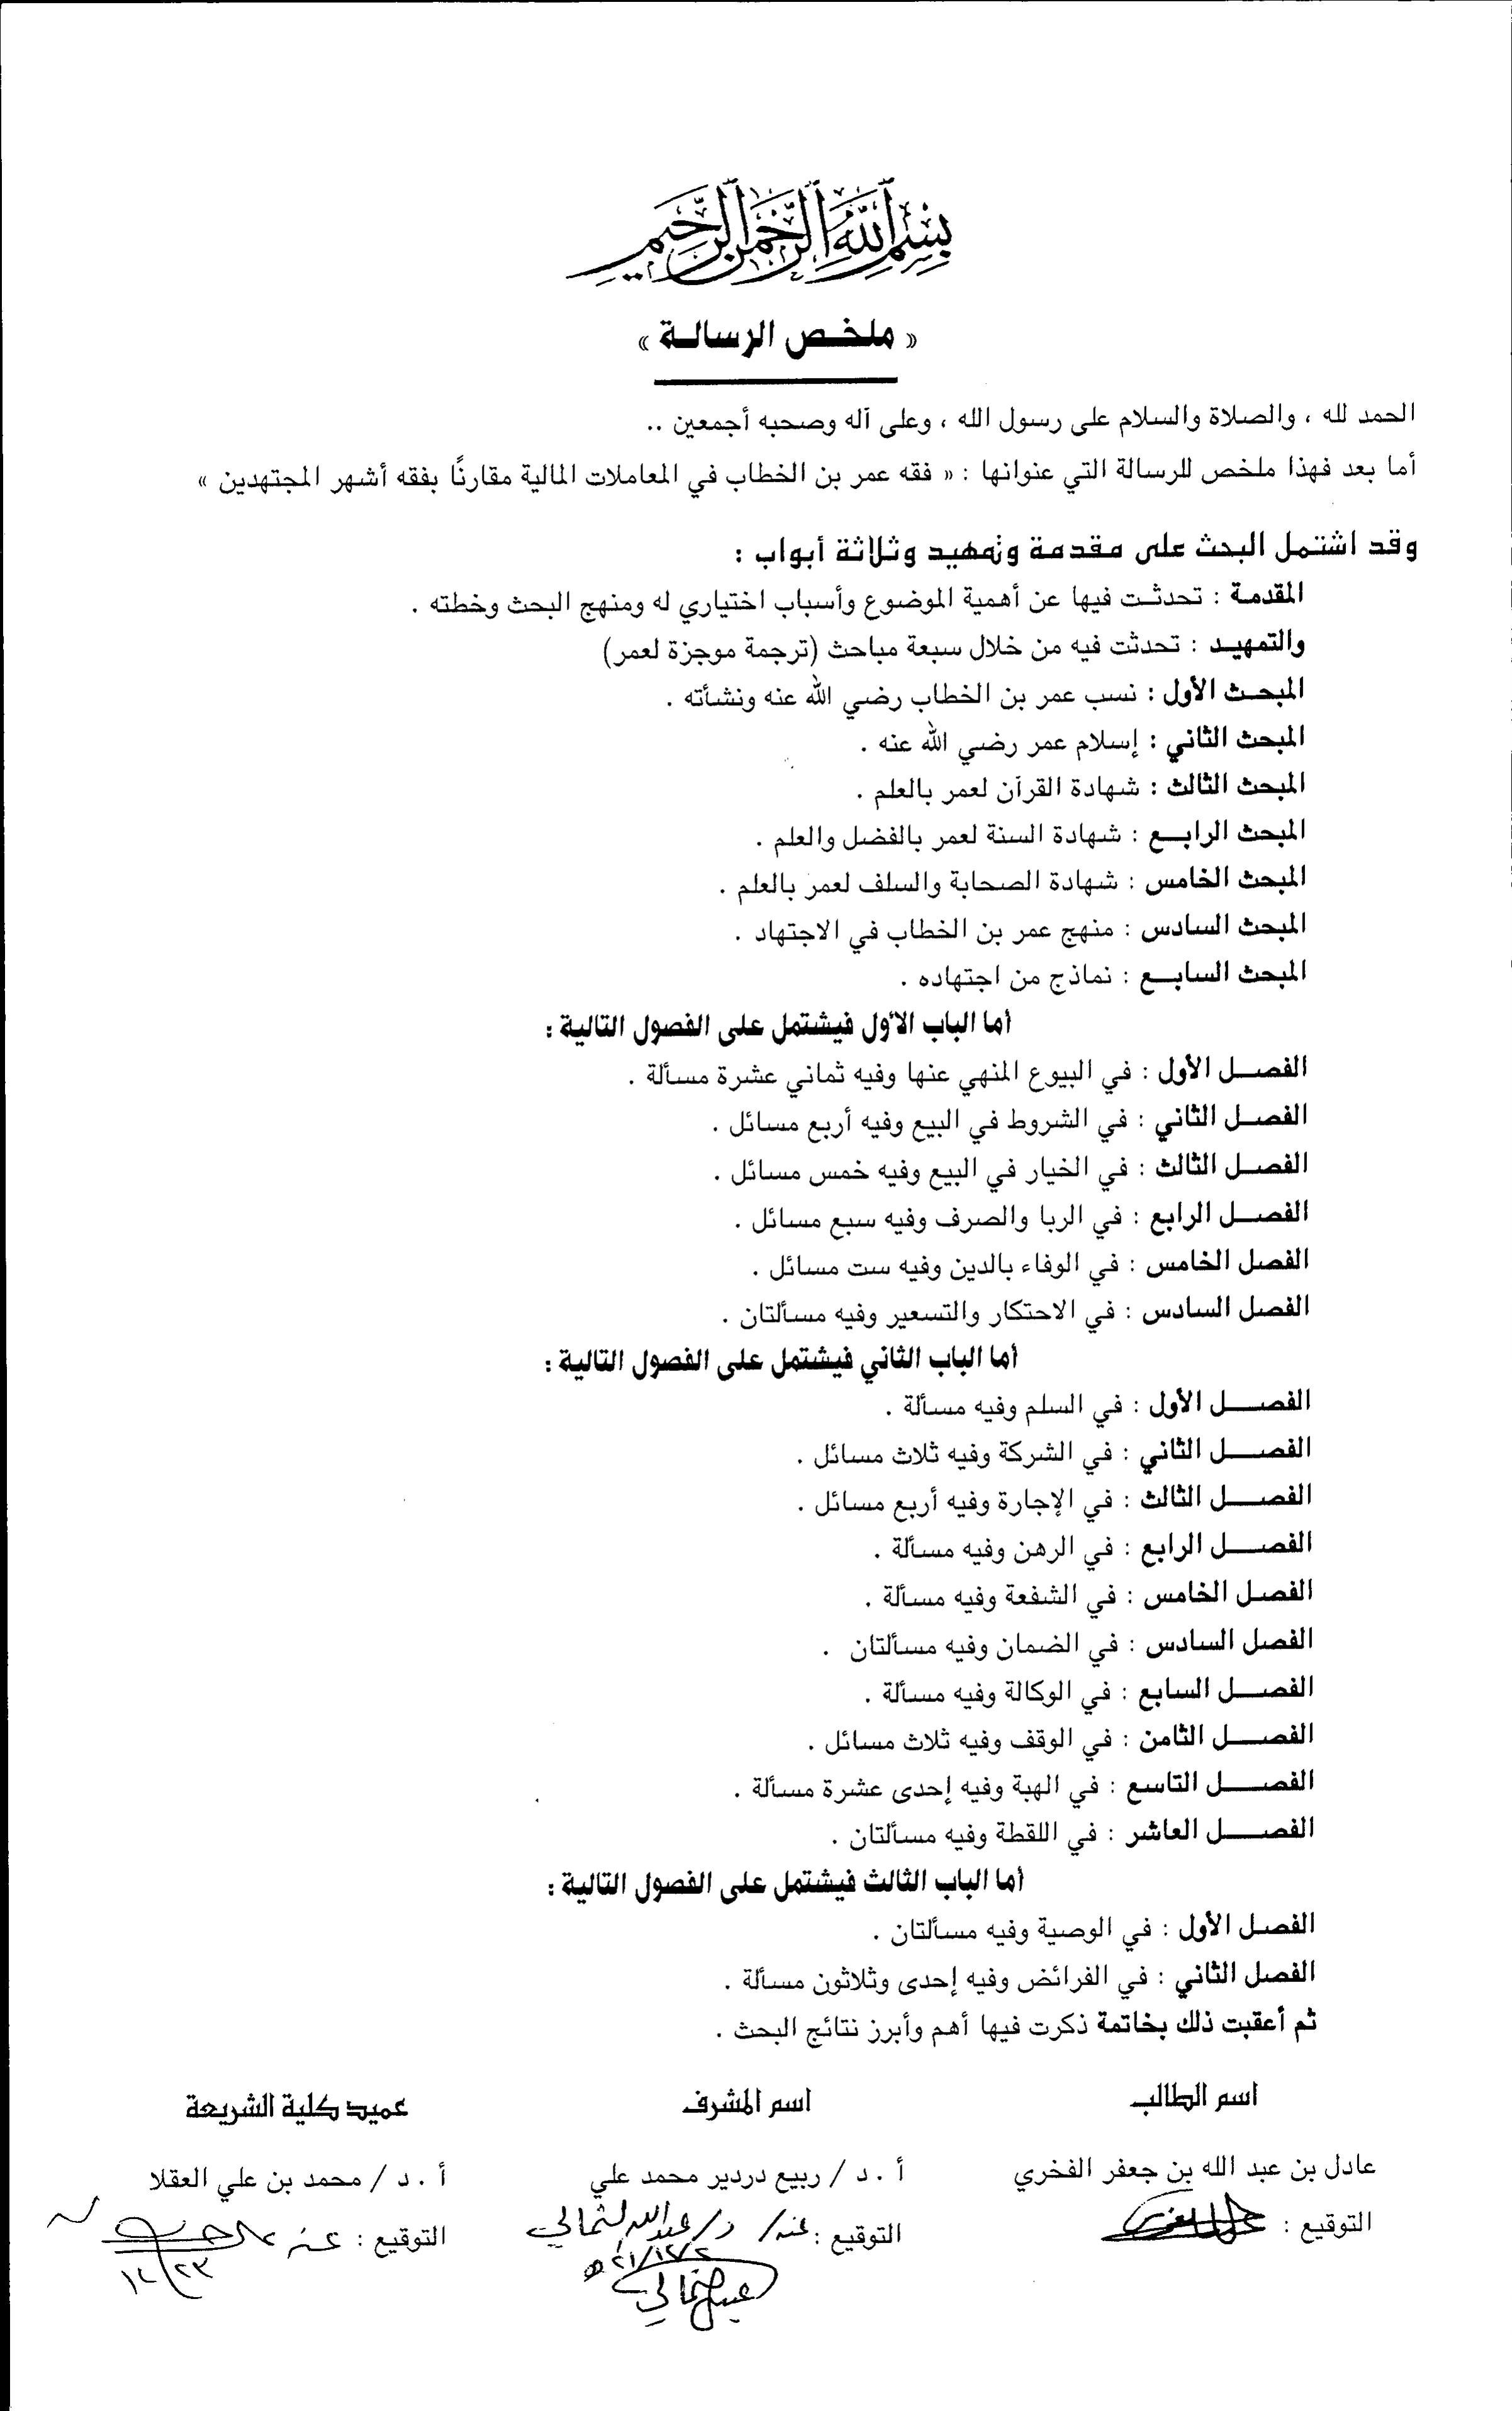 بسم الله الرحمن الرحيم
« ملخص الرسالة »
الحمد لله ، والصلاة والسلام على رسول الله ، وعلى آله وصحبه أجمعين ..
أما بعد فهذا ملخص للرسالة التي عنوانها : « فقه عمر بن الخطاب في المعاملات المالية مقارنًا بفقه أشهر المجتهدين »
وقد اشتمل البحث على مقدمة وتمهيد وثلاثة أبواب :
المقدمة : تحدثت فيها عن أهمية الموضوع وأسباب اختياري له ومنهج البحث وخطته .
والتمهيد : تحدثت فيه من خلال سبعة مباحث (ترجمة موجزة لعمر)
المبحث الأول : نسب عمر بن الخطاب رضي الله عنه ونشأته .
المبحث الثاني : إسلام عمر رضي الله عنه .
المبحث الثالث : شهادة القرآن لعمر بالعلم .
المبحث الرابع : شهادة السنة لعمر بالفضل والعلم .
المبحث الخامس : شهادة الصحابة والسلف لعمر بالعلم .
المبحث السادس : منهج عمر بن الخطاب في الاجتهاد .
المبحث السابع : نماذج من اجتهاده .
أما الباب الأول فيشتمل على الفصول التالية :
الفصل الأول : في البيوع المنهي عنها وفيه ثماني عشرة مسألة .
الفصل الثاني : في الشروط في البيع وفيه أربع مسائل .
الفصل الثالث : في الخيار في البيع وفيه خمس مسائل .
الفصل الرابع : في الربا والصرف وفيه سبع مسائل .
الفصل الخامس : في الوفاء بالدين وفيه ست مسائل .
الفصل السادس : في الاحتكار والتسعير وفيه مسألتان .
أما الباب الثاني فيشتمل على الفصول التالية :
الفصل الأول : في السلم وفيه مسألة .
الفصل الثاني : في الشركة وفيه ثلاث مسائل .
الفصل الثالث : في الإجارة وفيه أربع مسائل .
الفصل الرابع : في الرهن وفيه مسألة .
الفصل الخامس : في الشفعة وفيه مسألة .
الفصل السادس : في الضمان وفيه مسألتان .
الفصل السابع : في الوكالة وفيه مسألة .
الفصل الثامن : في الوقف وفيه ثلاث مسائل .
الفصل التاسع : في الهبة وفيه إحدى عشرة مسألة .
الفصل العاشر : في اللقطة وفيه مسألتان .
أما الباب الثالث فيشتمل على الفصول التالية :
الفصل الأول : في الوصية وفيه مسألتان .
الفصل الثاني : في الفرائض وفيه إحدى وثلاثون مسألة .
ثم أعقبت ذلك بخاتمة ذكرت فيها أهم وأبرز نتائج البحث .
اسم الطالب اسم المشرف عميد كلية الشريعة
عادل بن عبد الله بن جعفر الفخري أ . د / ربيع دردير محمد علي أ . د / محمد بن علي العقلا
التوقيع : التوقيع : عنه / د / عبدالله الثمالي التوقيع : عنه